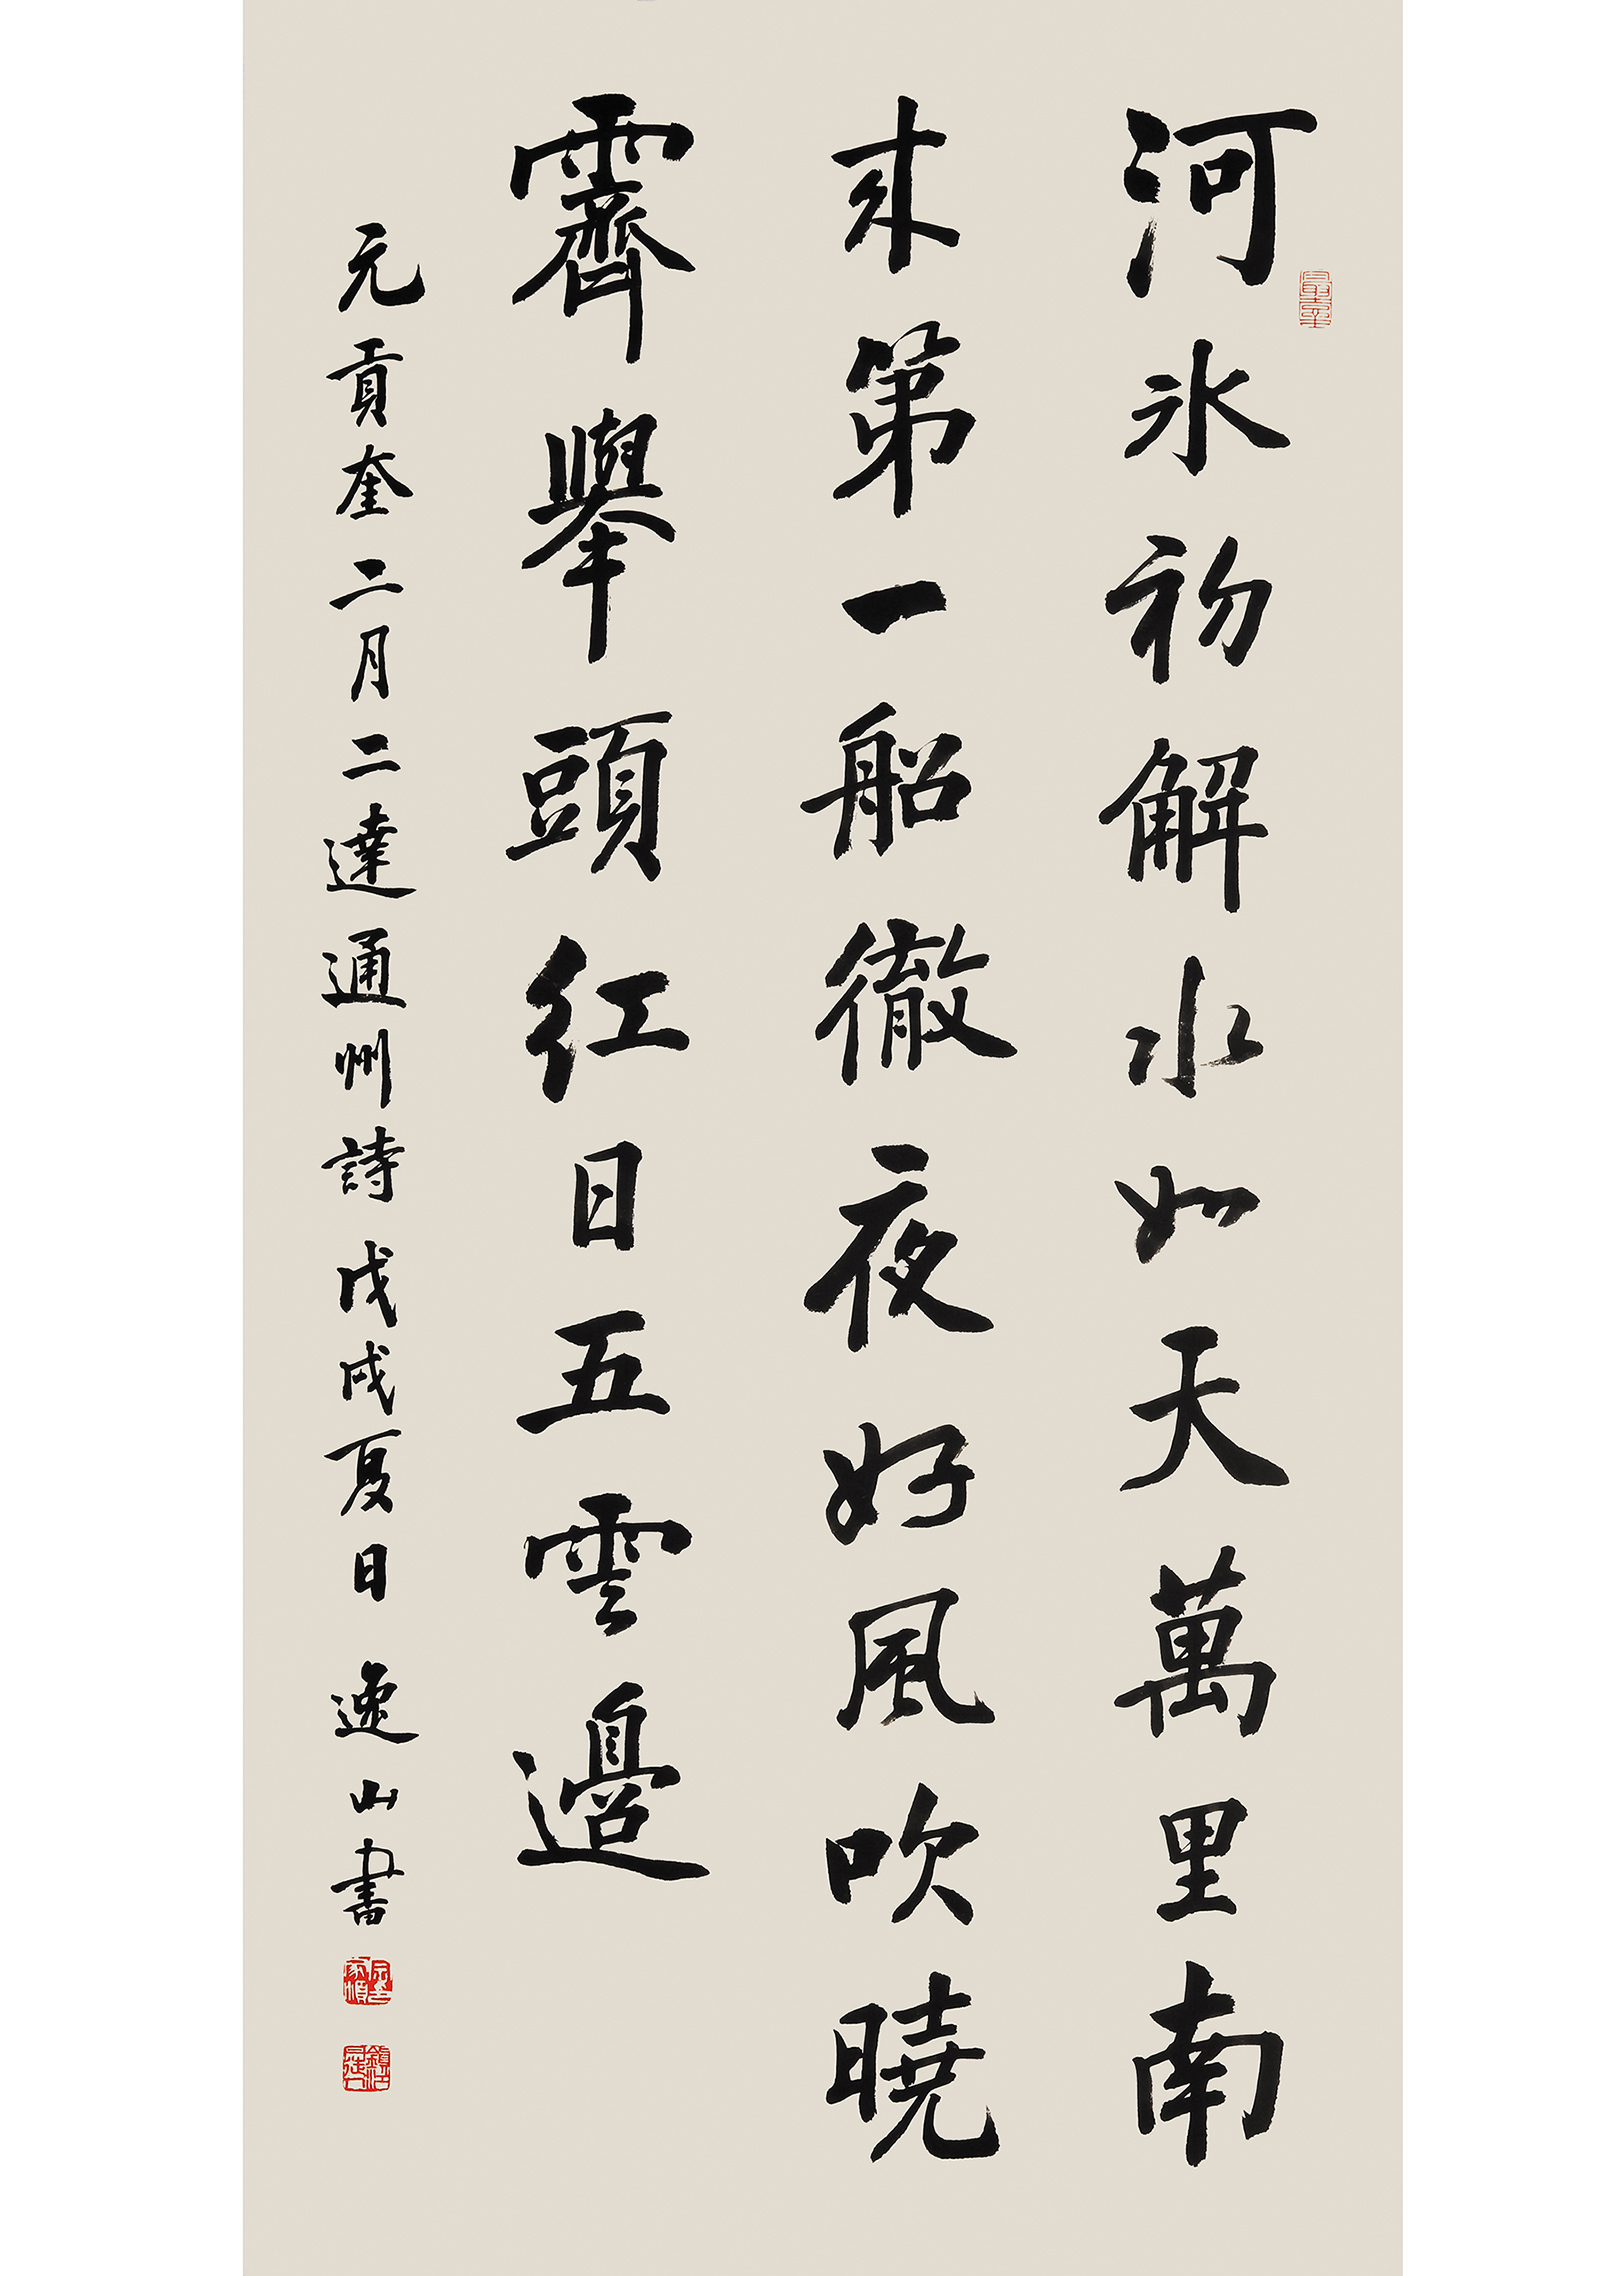 河冰初解水如天萬里南
來第一船徹夜好風吹曉
霽舉頭紅日五雲邊
元貢奎二月二達通州詩戊戌夏日逸山書